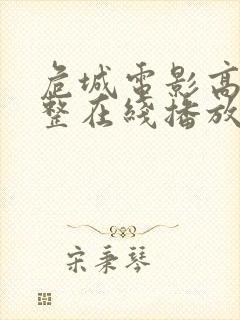 危城電影高
整在綫播放
宋秉琴